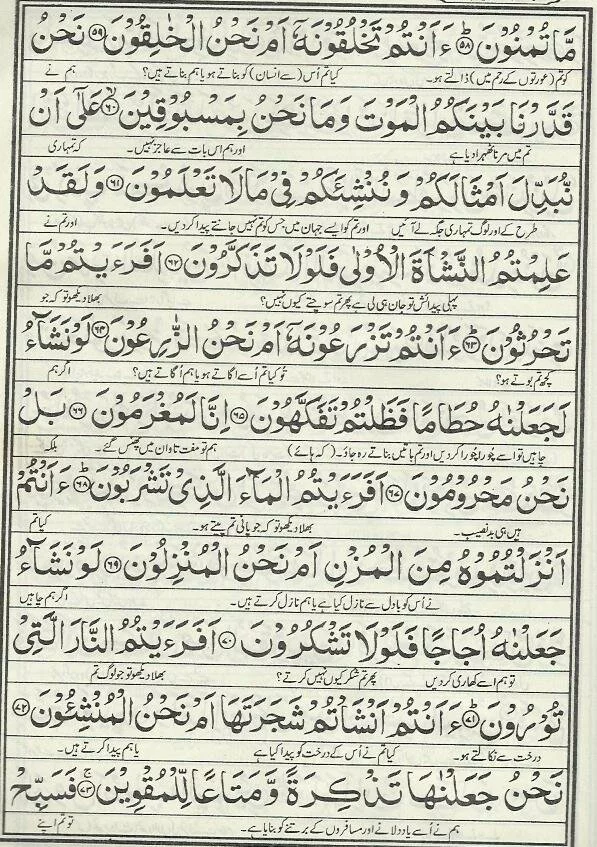 مَّا تُمْنُوْنَ ﴿۵۸﴾ ءَاَنْتُمْ تَخْلُقُوْنَهٗۤ اَمْ نَحْنُ الْخٰلِقُوْنَ ﴿۵۹﴾ نَحْنُ
کو تم (عورتوں کے رحم میں) ڈالتے ہو۔ کیا تم اُس (سے انسان) کو بناتے ہو یا ہم بناتے ہیں؟ ہم نے
قَدَّرْنَا بَيْنَكُمُ الْمَوْتَ وَمَا نَحْنُ بِمَسْبُوْقِيْنَ ﴿۶۰﴾ عَلٰۤى اَنْ
تم میں مرنا ٹھہرا دیا ہے اور ہم اس بات سے عاجز نہیں۔ کہ تمہاری
نُّبَدِّلَ اَمْثَالَكُمْ وَنُنْشِئَكُمْ فِيْ مَا لَا تَعْلَمُوْنَ ﴿۶۱﴾ وَلَقَدْ
طرح کے اور لوگ تمہاری جگہ لے آئیں اور تم کو ایسے جہان میں جس کو تم نہیں جانتے پیدا کر دیں۔ اور تم نے
عَلِمْتُمُ النَّشْاَةَ الْاُوْلٰى فَلَوْلَا تَذَكَّرُوْنَ ﴿۶۲﴾ اَفَرَءَيْتُمْ مَّا
پہلی پیدائش تو جان ہی لی ہے پھر تم سوچتے کیوں نہیں؟ بھلا دیکھو تو کہ جو
تَحْرُثُوْنَ ﴿۶۳﴾ ءَاَنْتُمْ تَزْرَعُوْنَهٗۤ اَمْ نَحْنُ الزّٰرِعُوْنَ ﴿۶۴﴾ لَوْ نَشَآءُ
کچھ تم بوتے ہو؟ تو کیا تم اُسے اُگاتے ہو یا ہم اُگاتے ہیں؟ اگر ہم
لَجَعَلْنٰهُ حُطَامًا فَظَلْتُمْ تَفَكَّهُوْنَ ﴿۶۵﴾ اِنَّا لَمُغْرَمُوْنَ ﴿۶۶﴾ بَلْ
چاہیں تو اسے چُورا چُورا کر دیں اور تم باتیں بناتے رہ جاؤ۔ (کہ ہائے) ہم تو مفت تاوان میں پھنس گئے۔ بلکہ
نَحْنُ مَحْرُوْمُوْنَ ﴿۶۷﴾ اَفَرَءَيْتُمُ الْمَآءَ الَّذِيْ تَشْرَبُوْنَ ﴿۶۸﴾ ءَاَنْتُمْ
ہیں ہی بدنصیب۔ بھلا دیکھو تو کہ جو پانی تم پیتے ہو۔ کیا تم
اَنْزَلْتُمُوْهُ مِنَ الْمُزْنِ اَمْ نَحْنُ الْمُنْزِلُوْنَ ﴿۶۹﴾ لَوْ نَشَآءُ
نے اُس کو بادل سے نازل کیا ہے یا ہم نازل کرتے ہیں۔ اگر ہم چاہیں
جَعَلْنٰهُ اُجَاجًا فَلَوْلَا تَشْكُرُوْنَ ﴿۷۰﴾ اَفَرَءَيْتُمُ النَّارَ الَّتِيْ
تو ہم اسے کھاری کر دیں پھر تم شکر کیوں نہیں کرتے؟ بھلا دیکھو تو جو لوگ تم
تُوْرُوْنَ ﴿۷۱﴾ ءَاَنْتُمْ اَنْشَاْتُمْ شَجَرَتَهَاۤ اَمْ نَحْنُ الْمُنْشِئُوْنَ ﴿۷۲﴾
درخت سے نکالتے ہو۔ کیا تم نے اُس کے درخت کو پیدا کیا ہے یا ہم پیدا کرتے ہیں۔
نَحْنُ جَعَلْنٰهَا تَذْكِرَةً وَّمَتَاعًا لِّلْمُقْوِيْنَ ﴿۷۳﴾ فَسَبِّحْ
ہم نے اُسے یاد دلانے اور مسافروں کے برتنے کو بنایا ہے۔ تو تم اپنے